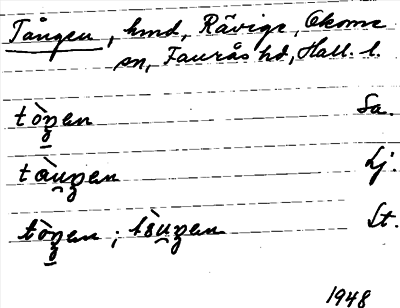 Tången, hmd, Rävige, Okome
sn, Faurås hd, Hall. l.
tòŋen Sa.
tàuŋen Lj.
tòŋen; tsùŋen Lt.
1948